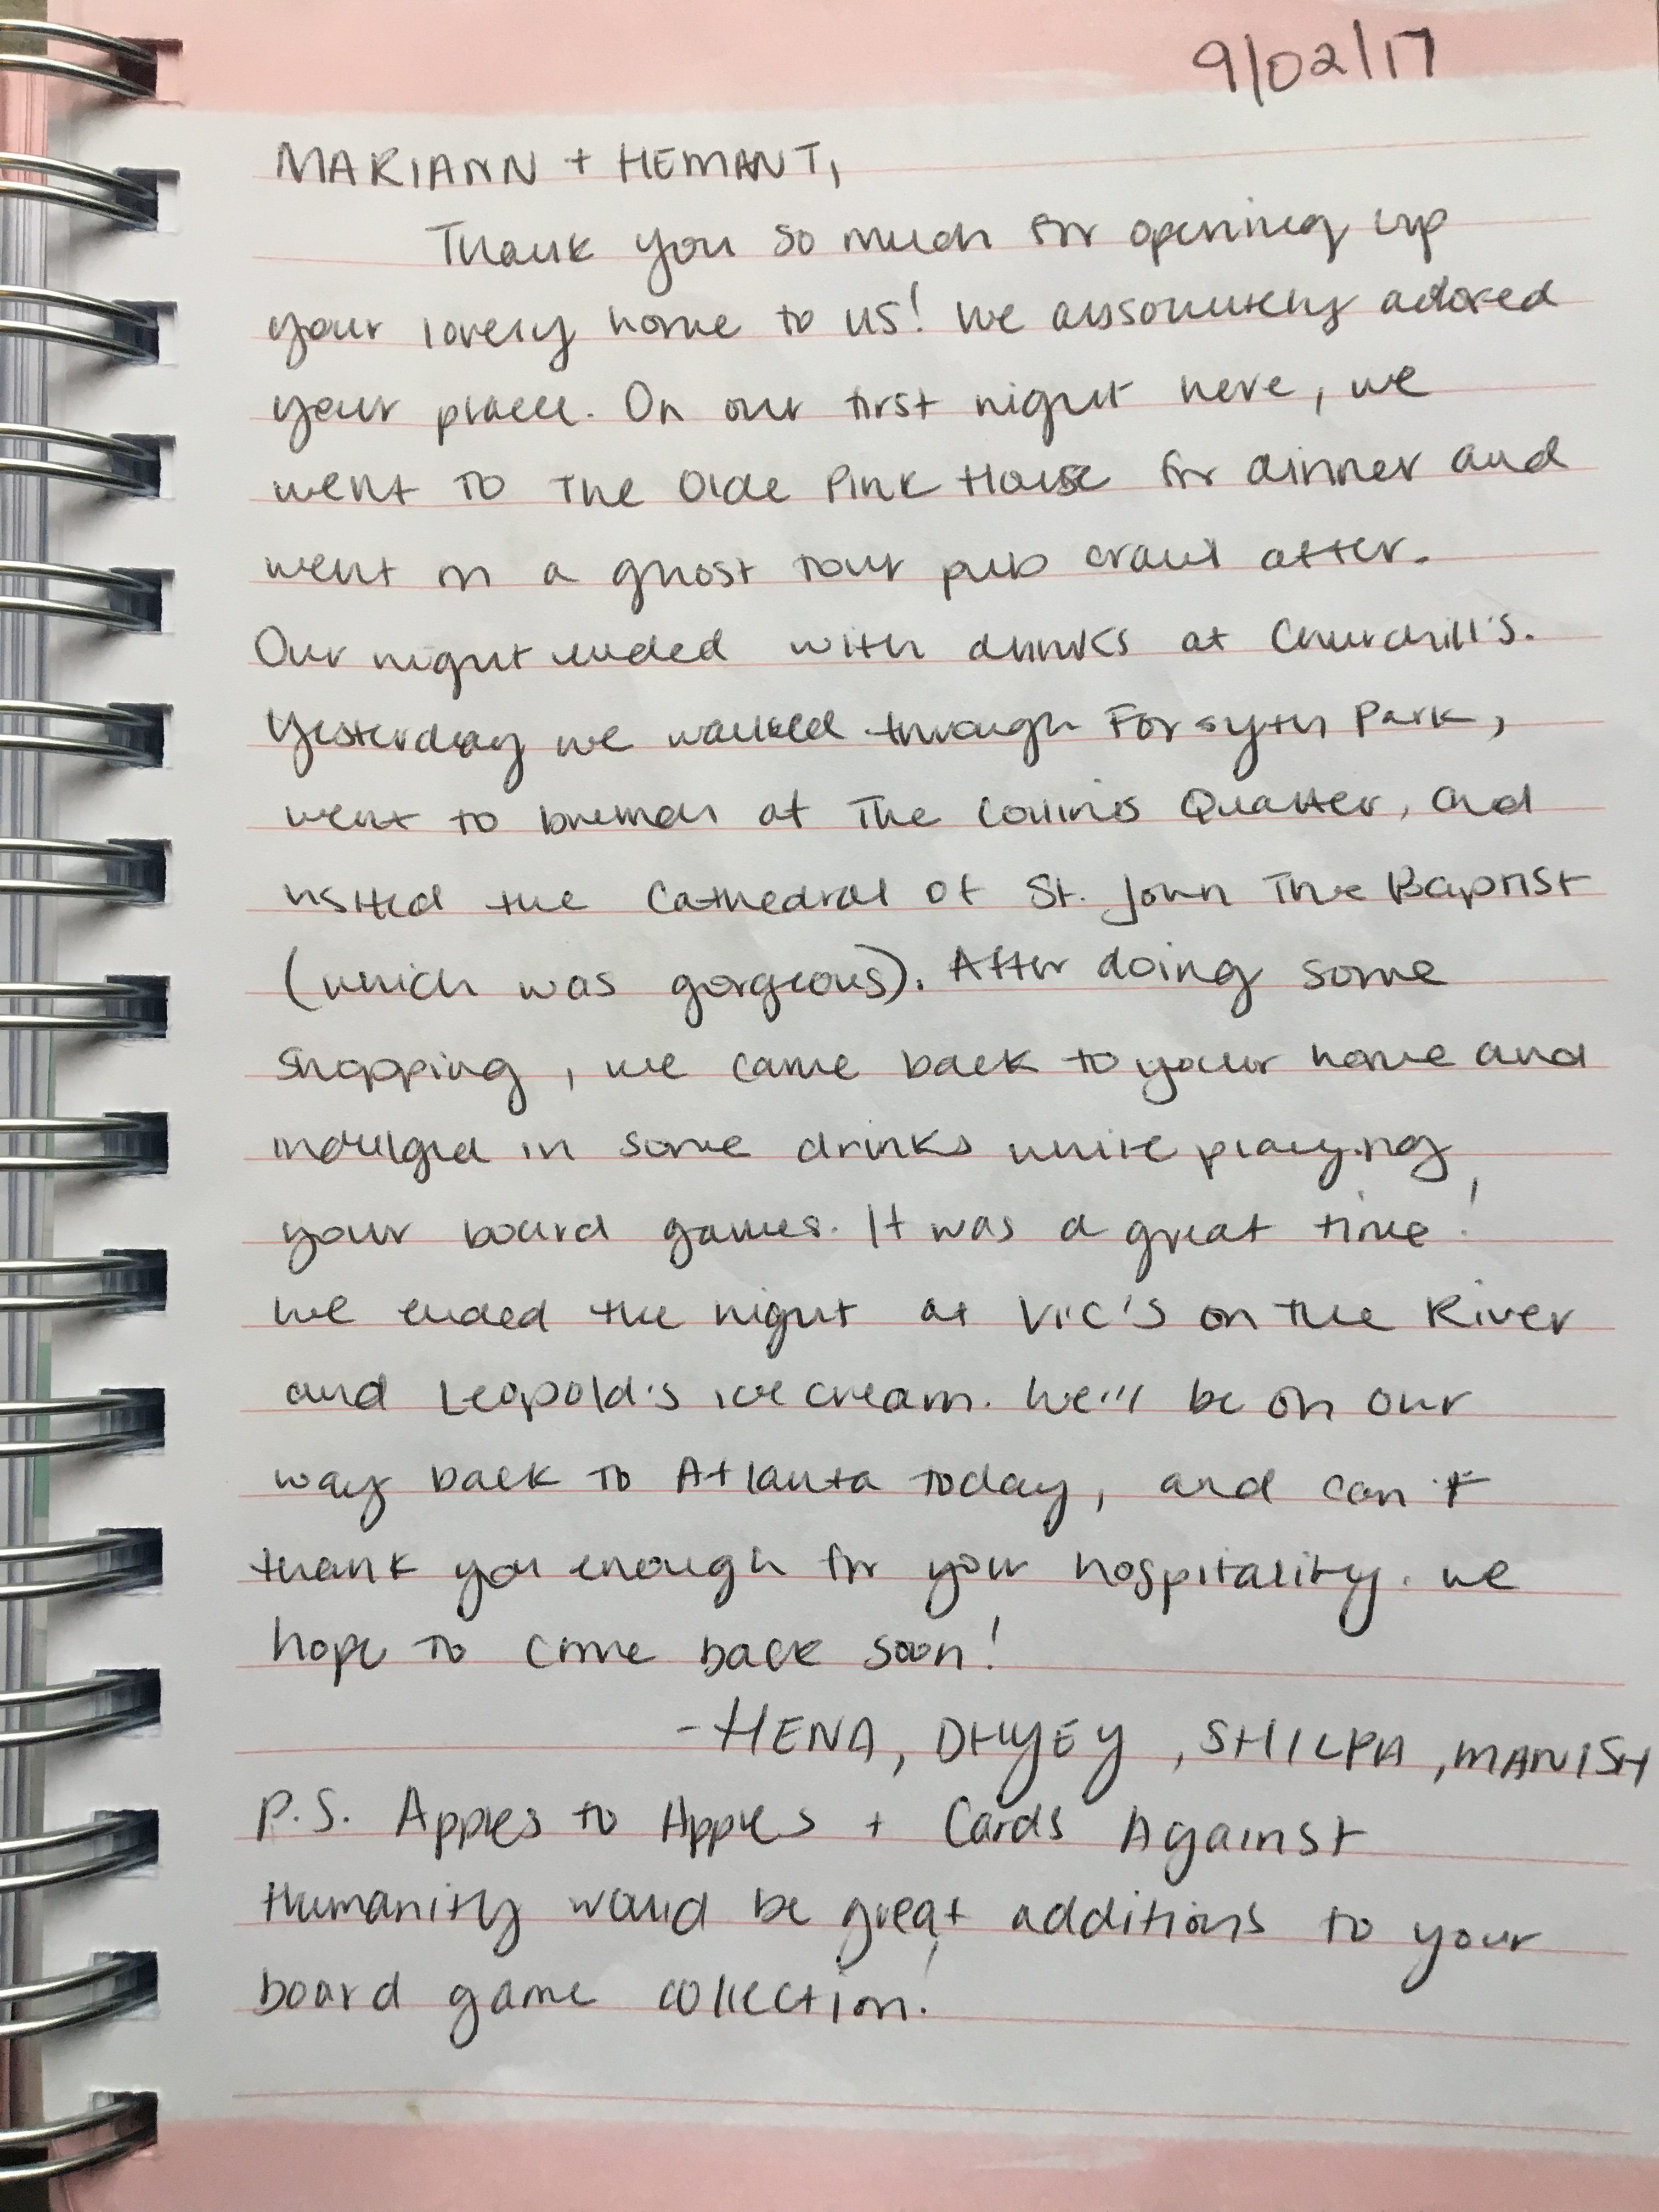 9/02/17
MARIANN + HEMANT,
Thank you so much for opening up
your lovely home to us! We absolutely adored
your place. On our first night here, we
went to The Olde Pink House for dinner and
went on a ghost tour pub crawl after.
Our night ended with drinks at Churchill's.
Yesterday we walked through Forsyth Park,
went to brunch at The Collins Quarter, and
visited the Cathedral of St. John The Baptist
(which was gorgeous). After doing some
shopping, we came back to your home and
indulged in some drinks while playing
your board games. It was a great time!
We ended the night at Vic's on the River
and Leopold's ice cream. We'll be on our
way back to Atlanta today, and can't
thank you enough for your hospitality. We
hope to come back soon!
- HENA, DHYEY, SHILPA, MANISH
P.S. Apples to Apples + Cards Against
Humanity would be great additions to your
board game collection!